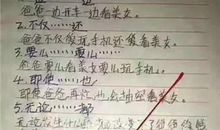 爸爸一边开车一边看美女。
2.不仅……还
爸爸不仅爱玩手机还爱看美女。
3.要么……要么
爸爸要么看美女要么玩手机。
4.即使……也
即使爸爸再忙,也会抽空看美女。
5.无论……都
无论发生什么